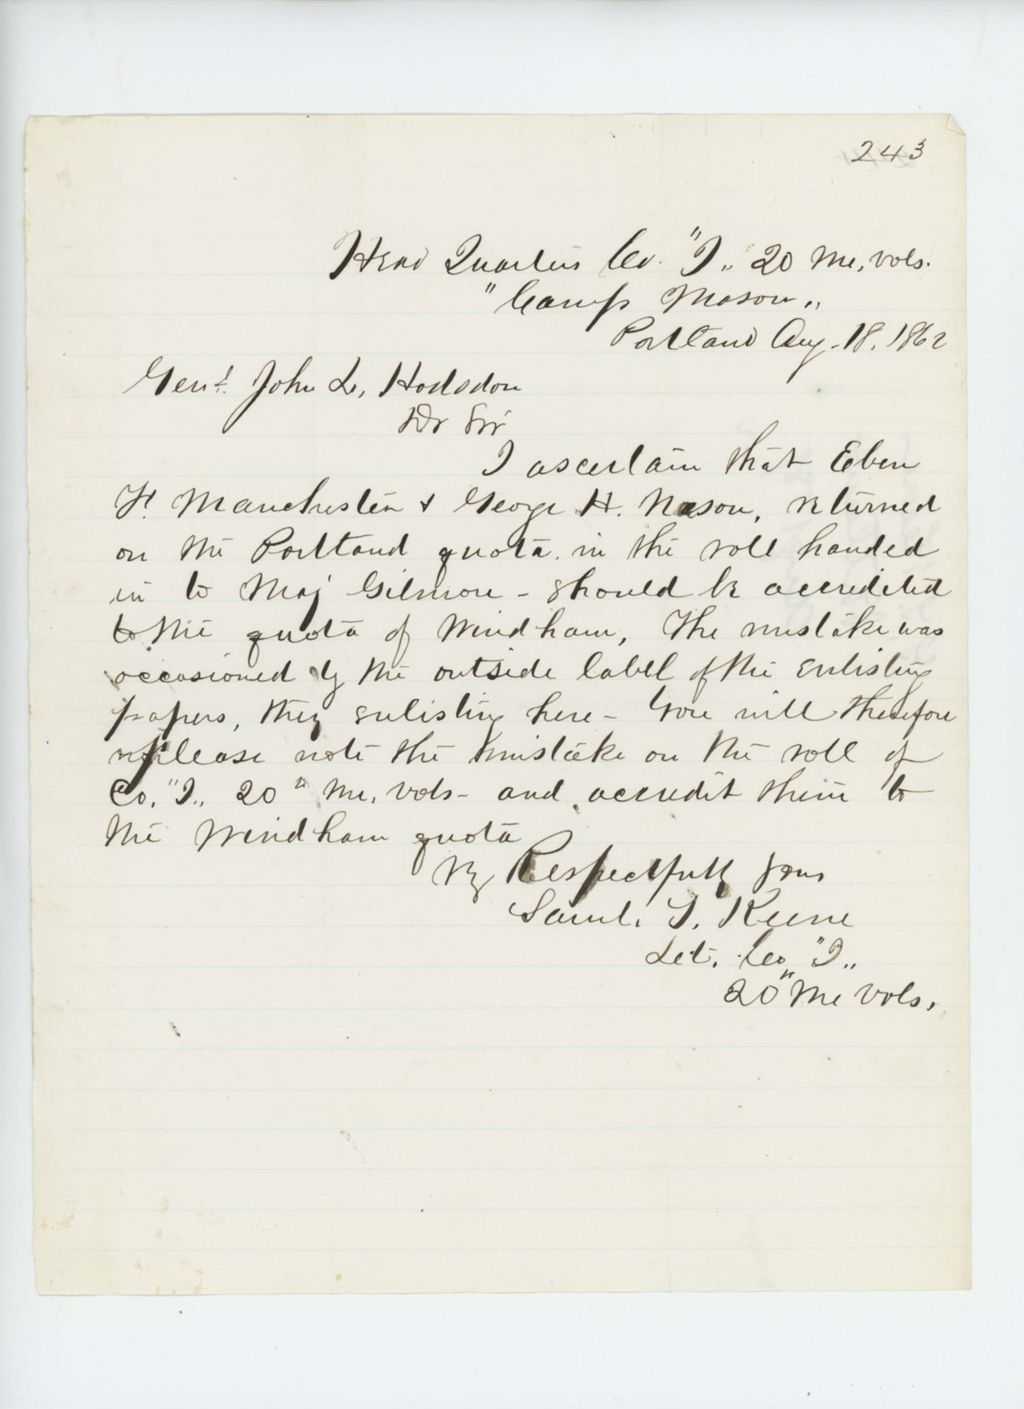 243
Head Quarters Co. "I,, 20 Me, vols.
"Camp Mason,,
Portland Aug. 18. 1862
Genl. John L, Hodsdon
Dr Sir
I ascertain that Eben
H. Manchester & George H. Nason, returned
on the Portland quota. in the roll handed
in to Maj Gilmore - should be accredited
to the quota of Windham, The mistake was
occasioned by the outside label of the enlisting
papers, they enlisting here - You will therefore
please note the mistake on the roll of
Co. "I,, 20" Me, vols - and accredit them to
the Windham quota
Vy Respectfully yours
Saml. T. Keene
Lit. Co "I,,
20" Me Vols,